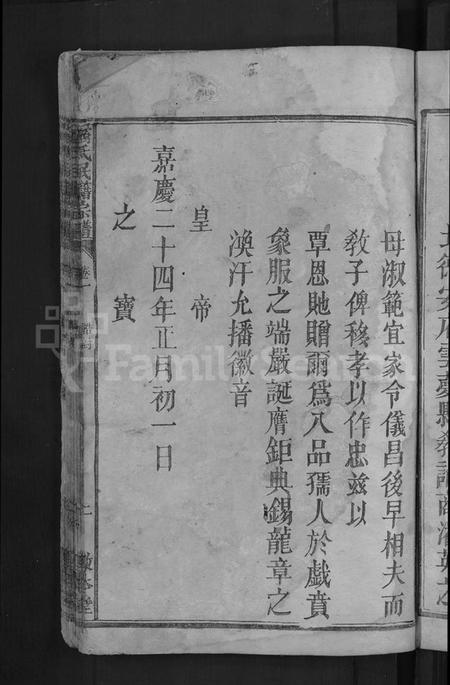 北德安府雲夢縣教諭
母淑範宜家令儀昌後早相夫而
敎子俾移孝以作忠兹以
覃恩貤贈爾爲八品孺人於戲賁
象服之端嚴誕膺鉅典錫龍章之
渙汗允播徽音
皇帝
嘉慶二十四年正月初一日
之寶
氏民籍宗譜 卷一
FamilySearch